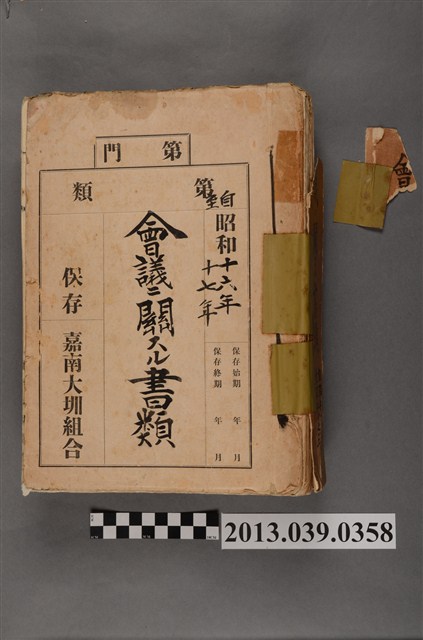 第　門
第　類
自昭和十六年
至　十七年
會議ニ關スル書類
保存始期　年　月
保存終期　年　月
保存
嘉南大圳組合
會
2013.039.0358